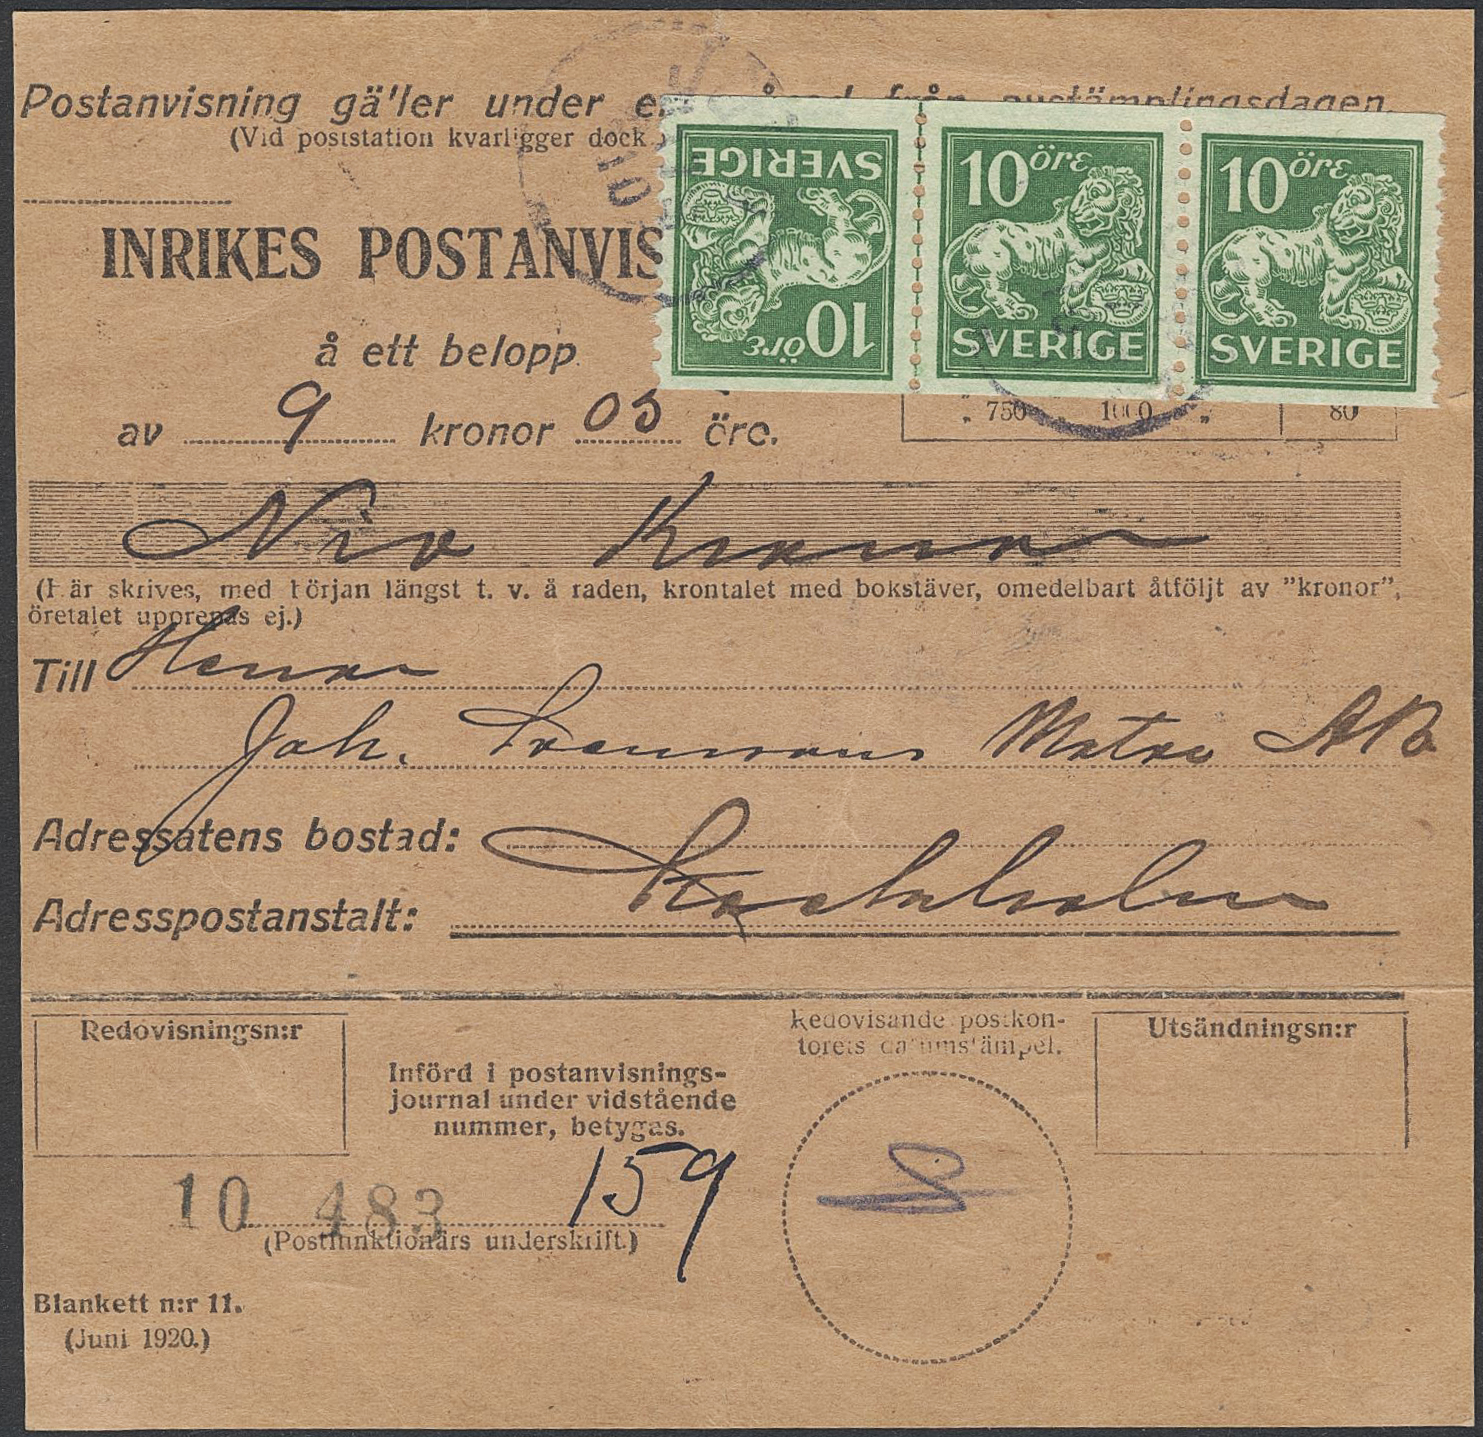 Postanvisning gä'ler under e
(Vid poststation kvarligger dock
INRIKES POSTANVIS
SVERIGE
10 öre
10 öre
SVERIGE
10 öre
SVERIGE
å ett belopp
av 9 kronor 03 öre.
„ 750 „ 1000 „ 80
Nio Kronor
(Här skrives, med början längst t. v. å raden, krontalet med bokstäver, omedelbart åtföljt av ”kronor”,
öretalet upprepas ej.)
Till Herrar
Joh. Svenssons AB
Adressatens bostad:
Adresspostanstalt: Stockholm
Redovisningsn:r
Redovisande postkon-
torets datumstämpel.
Utsändningsn:r
Införd i postanvisnings-
journal under vidstående
nummer, betygas.
159
10 483
(Postfunktionärs underskrift.)
Blankett n:r 11.
(Juni 1920.)